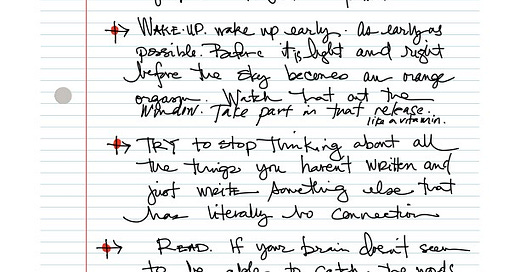 WAKE UP. wake up early. As early as
possible. Before it is light and right
before the sky becomes an orange
orgasm. Watch that out the
window. Take part in that release.
like a vitamin.
TRY to stop thinking about all
the things you haven't written and
just write something else that
has literally no connection
READ. If your brain doesn't seem
to be able to catch the words